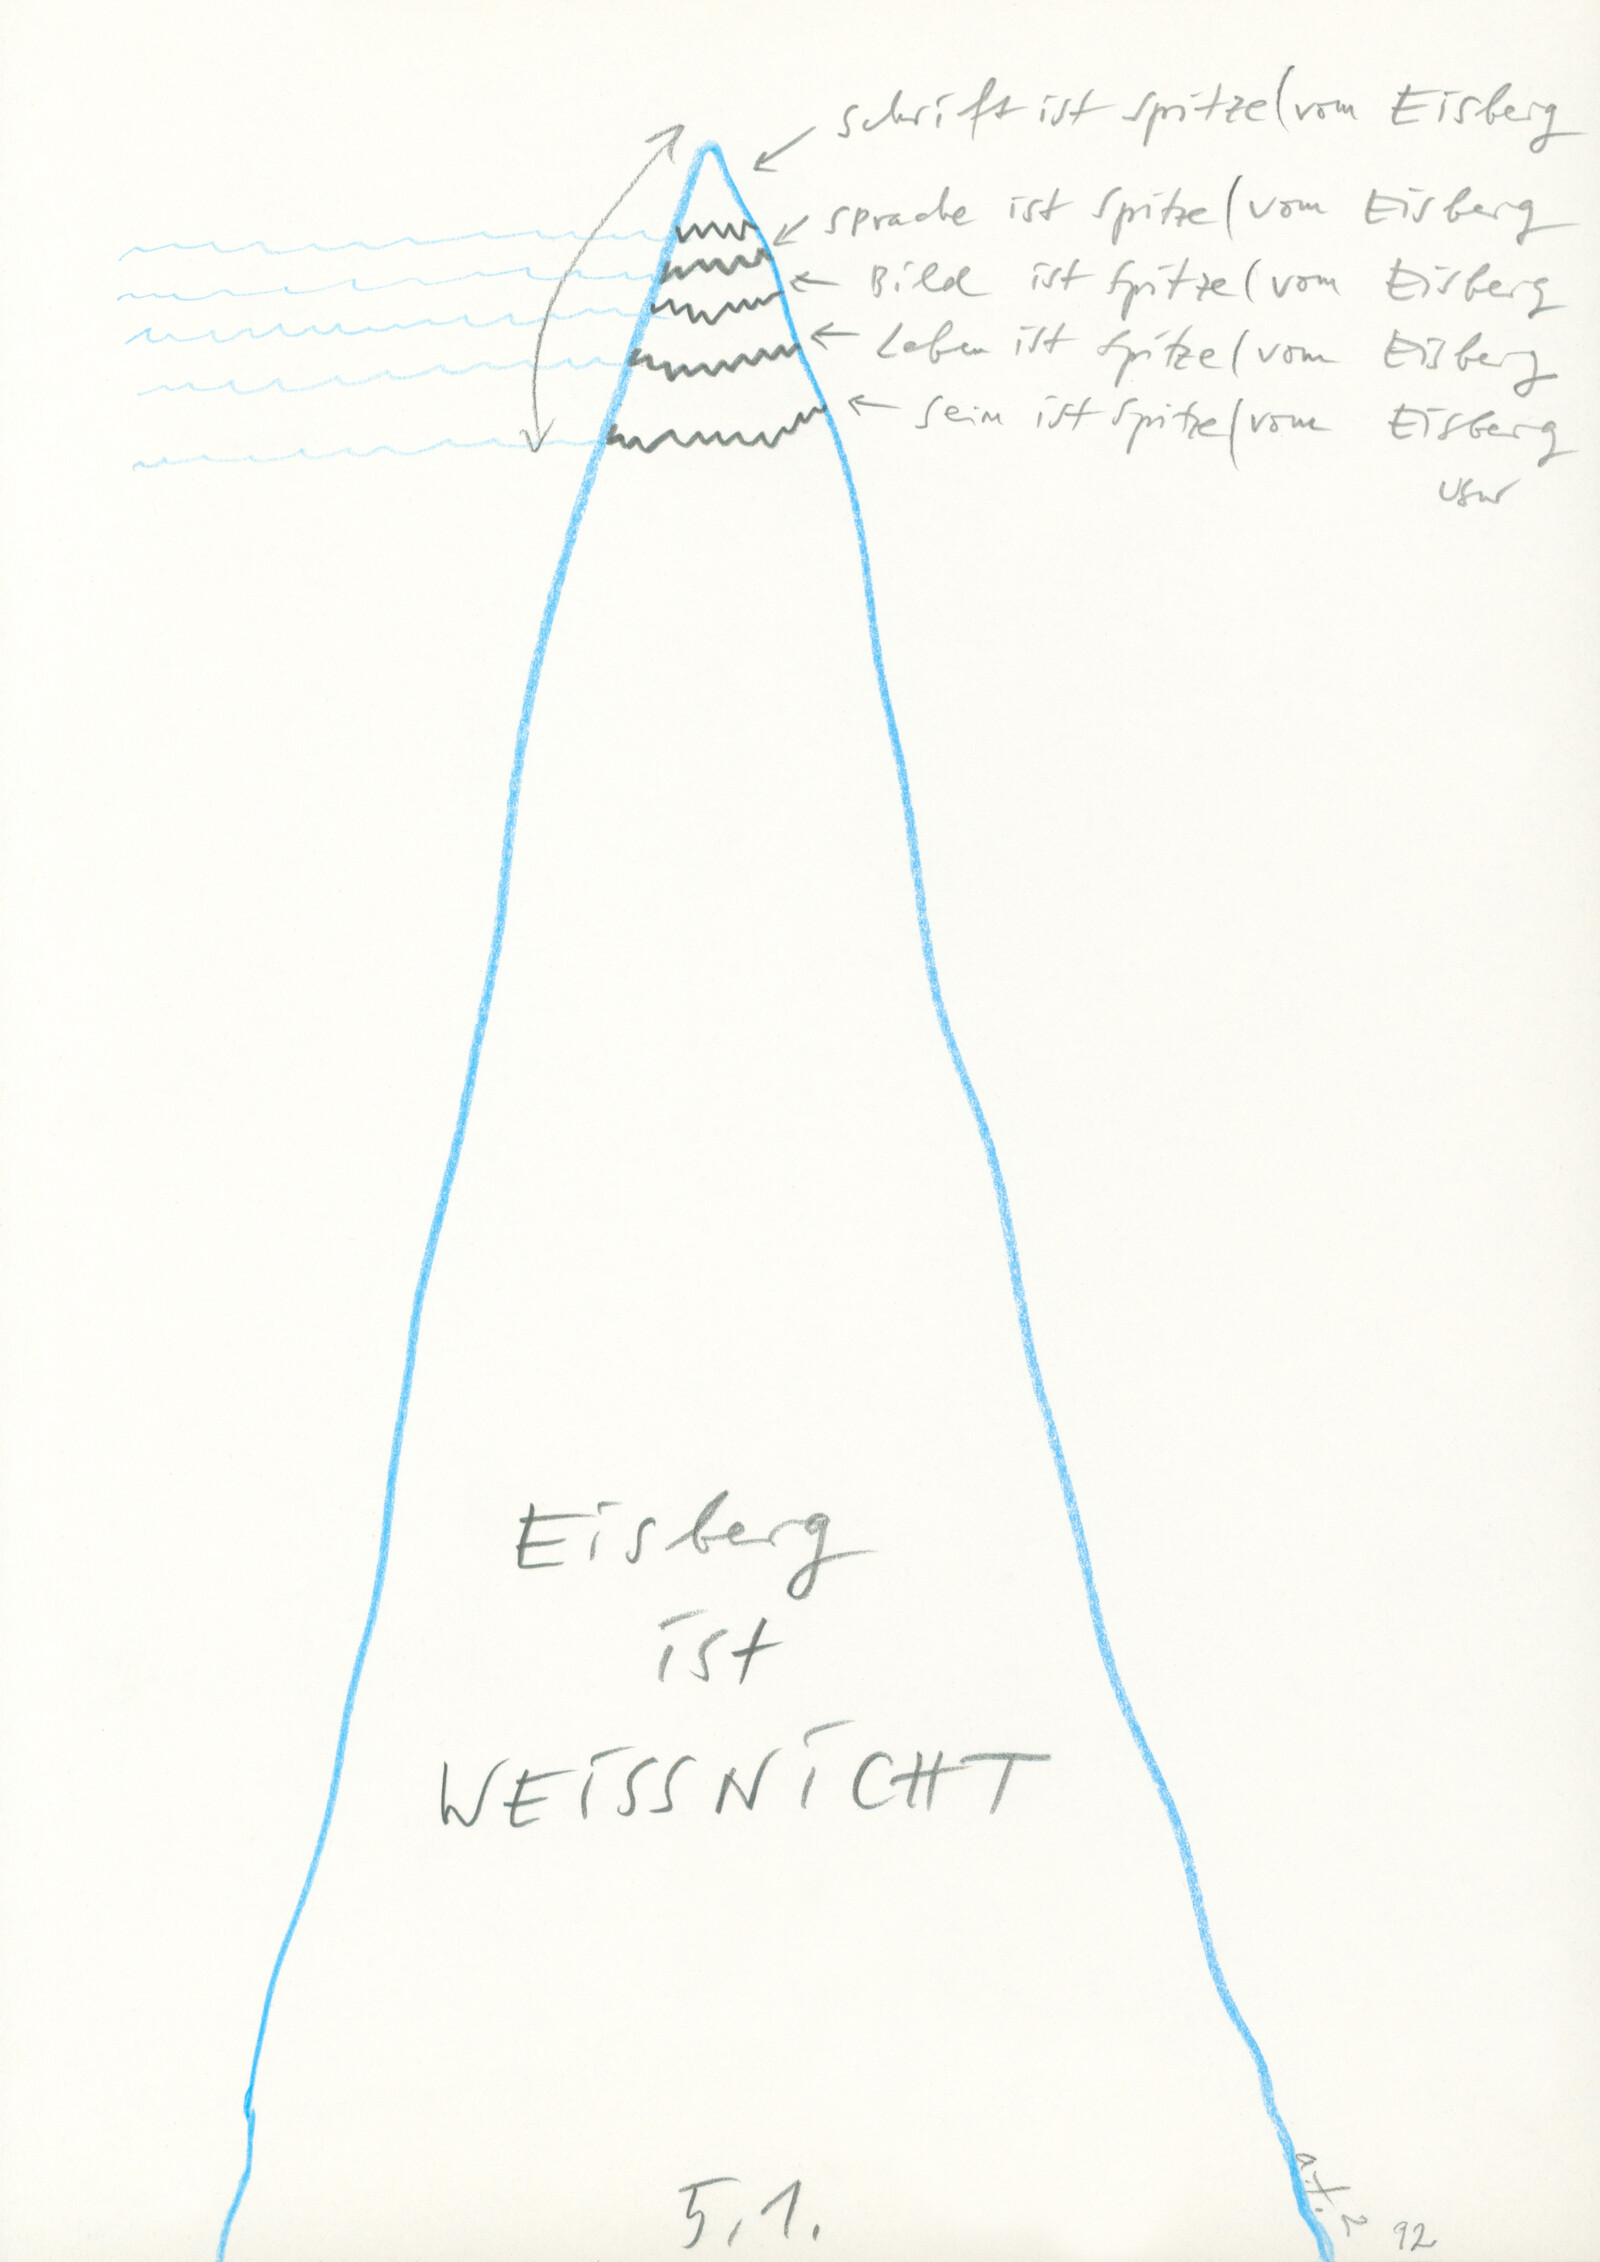 Schrift ist Spitze (vom Eisberg
Sprache ist Spitze (vom Eisberg
Bild ist Spitze (vom Eisberg
Leben ist Spitze (vom Eisberg
Sein ist Spitze (vom Eisberg
usw
Eisberg
ist
WEiSSNiCHT
5.1.
92